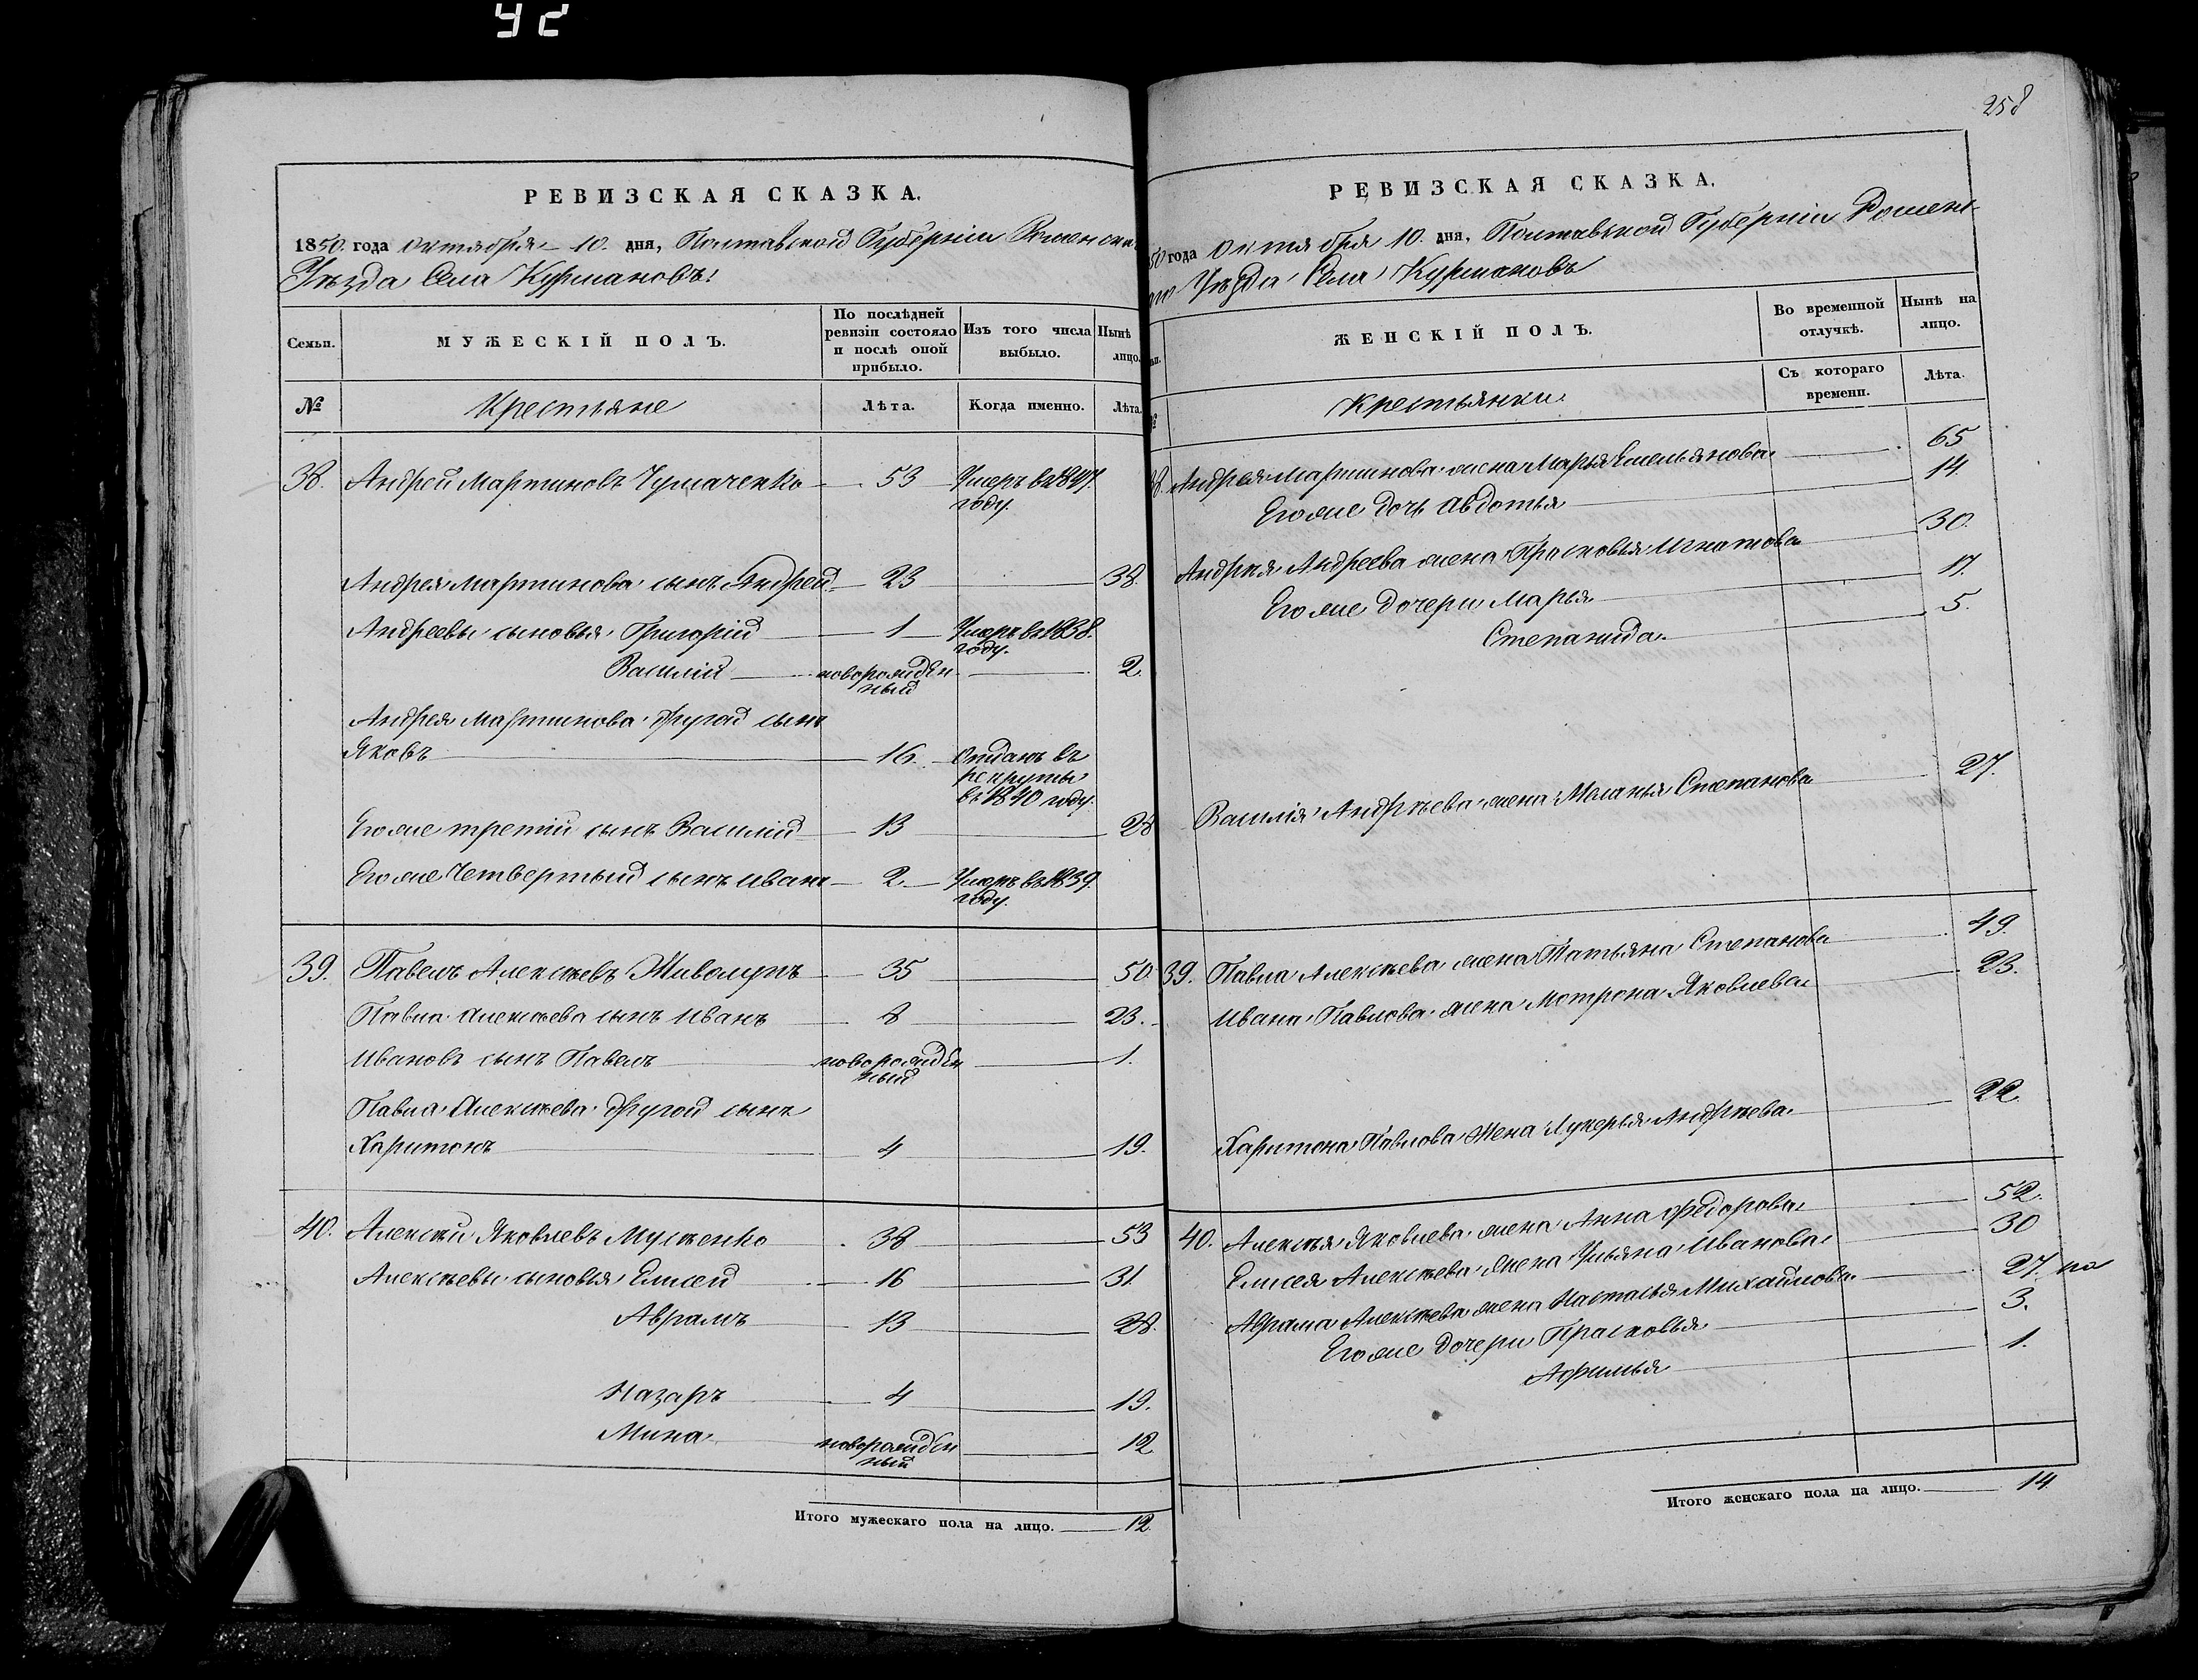 92
РЕВИЗСКАЯ СКАЗКА.
1850. года октября 10. дня, Полтавской Губерніи Роменска
Уѣзда Села Курмановъ
Семьи.
МУЖЕСКІЙ ПОЛЪ.
По послѣдней ревизіи состояло и послѣ оной прибыло.
Изъ того числа выбыло.
Нынѣ лицо.
№
Крестьяне
Лѣта.
Когда именно.
Лѣта.
38. Андрей Мартиновъ Чумаченко 53 Умеръ въ 1847
году.
Андрея Мартинова сынъ Андрей 23 38.
Андреевы сыновья Григорій 1 Умеръ въ 1838.
году.
Василій новорожден 2.
ный
Андрея Мартинова другой сынъ
Яковъ 16. Отданъ въ
рекруты
въ 1840 году.
Его же третий сынъ Василій 13 28
Его же Четвертый сынъ Иванъ 2. Умеръ въ 1839.
году.
39. Павелъ Алексѣевъ 35 50.
Павла Алексѣева сынъ Иванъ 8 23.
Ивановъ сынъ Павелъ новорожден 1.
ный
Павла Алексѣева другой сынъ
Харитонъ 4 19.
40. Алексѣй Яковлевъ Мусѣенко 38 53
Алексѣевы сыновья Елисей 16 31.
Аврамъ 13 28.
Назаръ 4 19.
Мина новорожден 12
ный
Итого мужескаго пола на лицо. 12.
258
РЕВИЗСКАЯ СКАЗКА.
50 года Октября 10. дня, Полтавской Губерніи Роменс-
аго Уѣзда Села Курмановъ
ЖЕНСКІЙ ПОЛЪ.
Во временной отлучкѣ.
Нынѣ на лицо.
Крестьянки.
Съ котораго времени.
Лѣта.
8. Андрея Мартинова жена Марья Емельянова 65
Его же дочь Авдотья 14.
Андрея Андреева жена Прасковья Игнатова 30.
Его же дочери Марья 17.
Степанида 5.
Василія Андрѣева жена Меланья Степанова 27.
39. Павла Алексѣева жена Татьяна Степанова 49.
Ивана Павлова жена Мотрона Яковлева 23.
Харитона Павлова Жена Лукерья Андрѣева 22.
40. Алексѣя Яковлева жена Анна Федорова 52.
Елисея Алексѣева жена Ульяна Иванова 30
Аврама Алексѣева жена Настасья Михайлова 27.
Его же дочери Прасковья 3.
Афимья 1.
Итого женскаго пола на лицо. 14